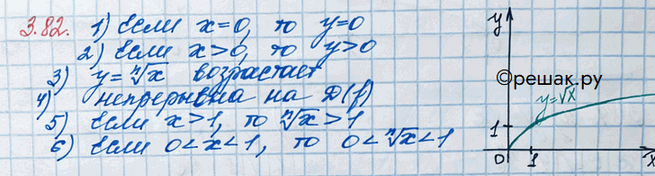 3.82. 1) Если x=0, то y=0
2) Если x>0, то y>0
3) y=ⁿ√x возрастает
4) непрерывна на D(f)
5) Если x>1, то ⁿ√x>1
6) Если 0<x<1, то 0<ⁿ√x<1
y
©решак.ру
y=√x
1
0 1 x